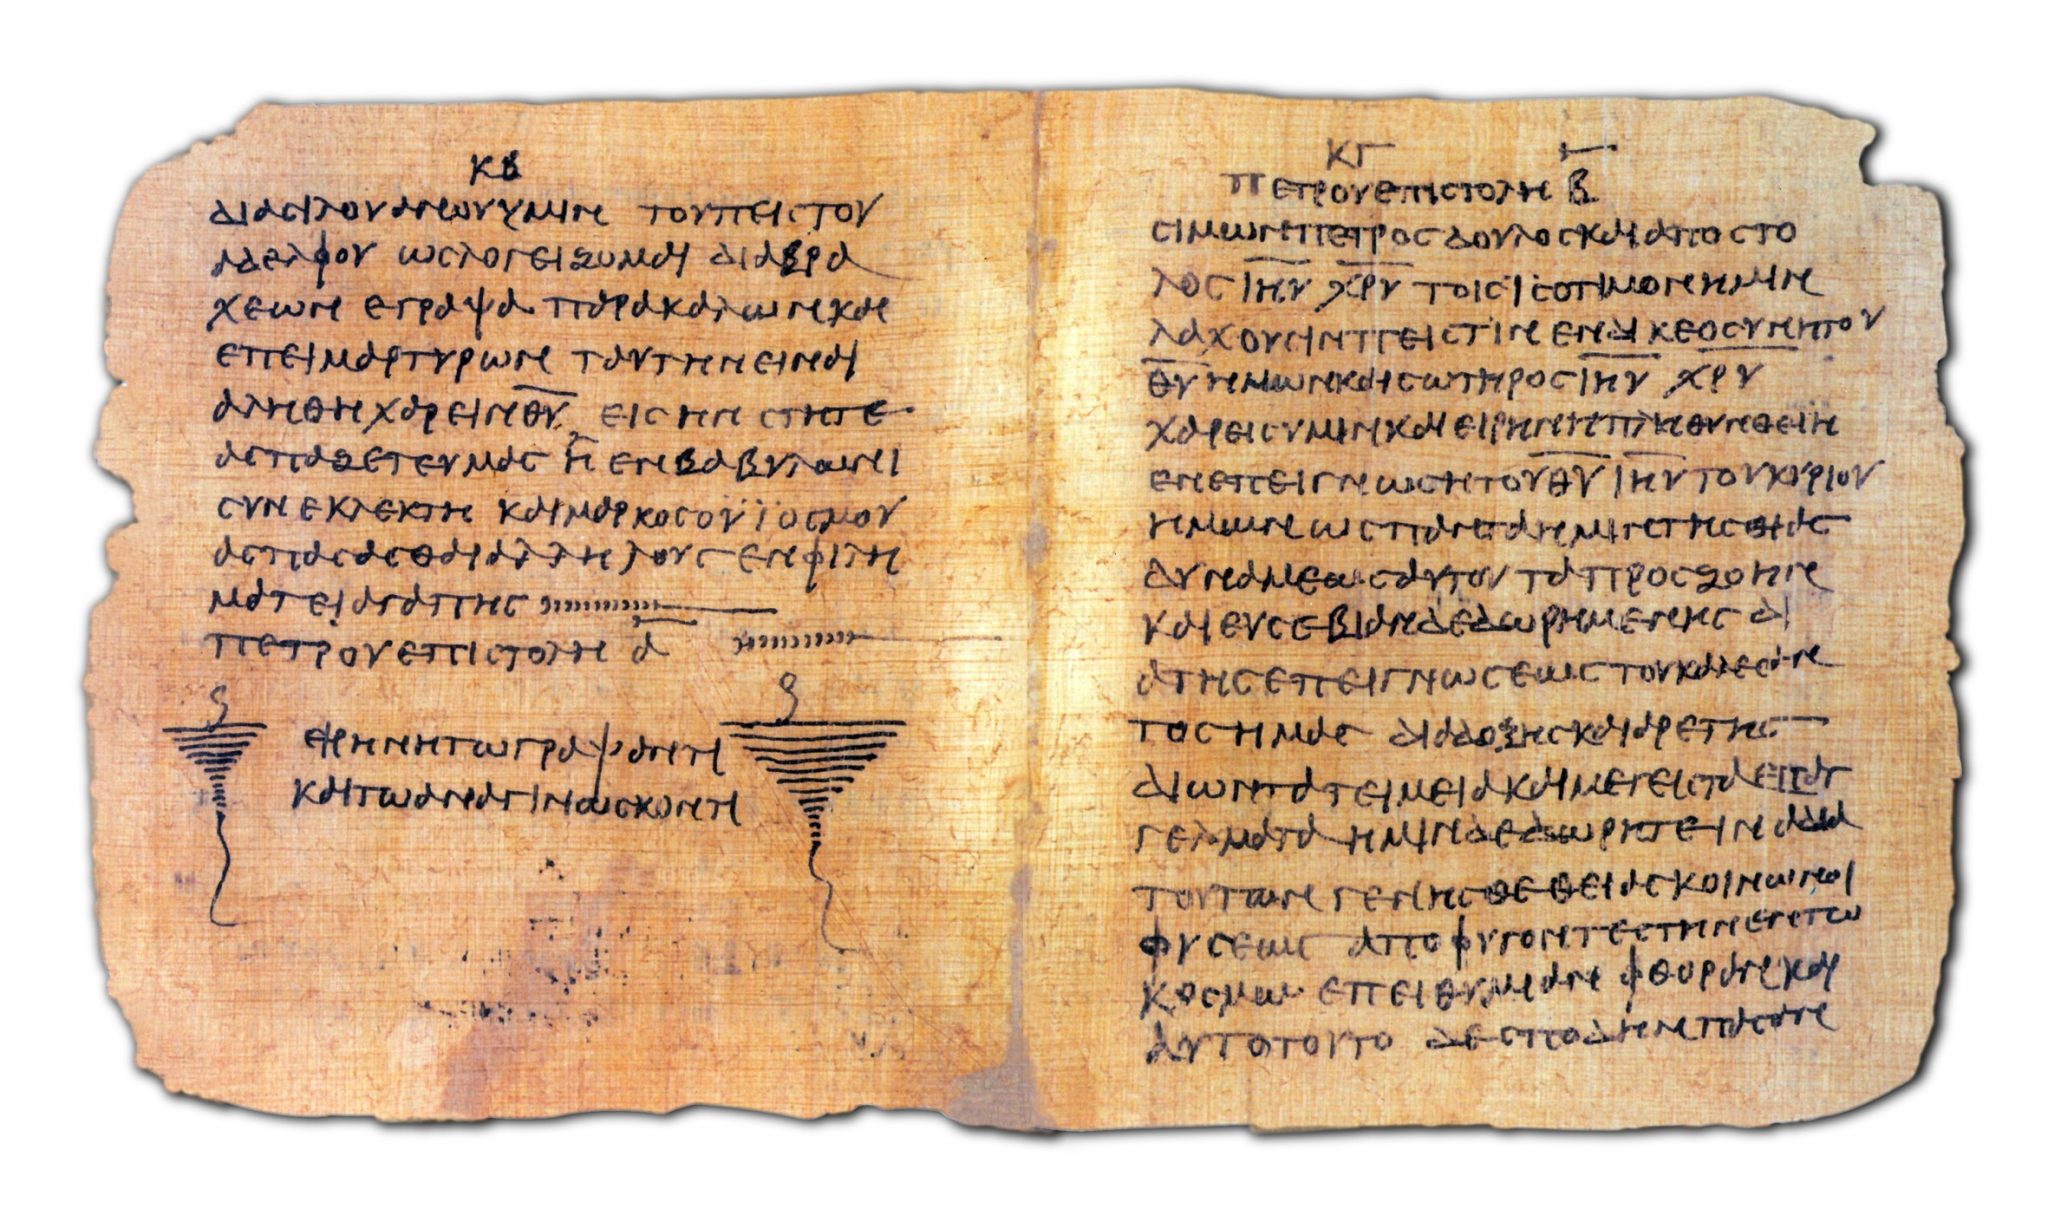 ΚΒ
ΔΙΑϹΙΛΟΥΑΝΟΥΥΜΙΝ ΤΟΥΠΕΙϹΤΟΥ
ΑΔΕΛΦΟΥ ΩϹΛΟΓΕΙΖΟΜΑΙ ΔΙΑΒΡΑ
ΧΕΩΝ ΕΓΡΑΨΑ ΠΑΡΑΚΑΛΩΝΚΑΙ
ΕΠΕΙΜΑΡΤΥΡΩΝ ΤΑΥΤΗΝΕΙΝΑΙ
ΑΛΗΘΗΧΑΡΕΙΝΘ̅Υ̅ ΕΙϹΗΝ ϹΤΗΤΕ
ΑϹΠΑΖΕΤΕΥΜΑϹ Η ΕΝΒΑΒΥΛΩΝΙ
ϹΥΝΕΚΛΕΚΤΗ ΚΑΙΜΑΡΚΟϹΟΥΪΟϹΜΟΥ
ΑϹΠΑϹΑϹΘΑΙΑΛΛΗΛΟΥϹ ΕΝΦΙΛΗ
ΜΑΤΕΙΑΓΑΠΗϹ
ΠΕΤΡΟΥΕΠΙϹΤΟΛΗ Α̅
ΕΙΡΗΝΗΤΩΓΡΑΨΑΝΤΙ
ΚΑΙΤΩΑΝΑΓΙΝΩϹΚΟΝΤΙ
ΚΓ
ΠΕΤΡΟΥΕΠΙϹΤΟΛΗ Β̅
ϹΙΜΩΝΠΕΤΡΟϹΔΟΥΛΟϹΚΑΙΑΠΟϹΤΟ
ΛΟϹ Ι̅Η̅Υ̅ Χ̅Ρ̅Υ̅ ΤΟΙϹΪϹΟΤΙΜΟΝΗΜΙΝ
ΛΑΧΟΥϹΙΝΠΕΙϹΤΙΝ ΕΝΔΙΚΕΟϹΥΝΗΤΟΥ
Θ̅Υ̅ΗΜΩΝΚΑΙϹΩΤΗΡΟϹ Ι̅Η̅Υ̅ Χ̅Ρ̅Υ̅
ΧΑΡΕΙϹΥΜΙΝΚΑΙΕΙΡΗΝΗΠΛΗΘΥΝΘΕΙΗ
ΕΝΕΠΕΙΓΝΩϹΗΤΟΥΘ̅Υ̅ Ι̅Η̅Υ̅ ΤΟΥΚΥΡΙΟΥ
ΗΜΩΝ ΩϹΠΑΝΤΑΗΜΙΝΤΗϹΘΙΑϹ
ΔΥΝΑΜΕΩϹΑΥΤΟΥ ΤΑΠΡΟϹΖΟΗΝ
ΚΑΙΕΥϹΕΒΙΑΝΔΕΔΩΡΗΜΕΝΗϹ ΔΙ
ΑΤΗϹΕΠΕΙΓΝΩϹΕΩϹ ΤΟΥΚΑΛΕϹΑΝ
ΤΟϹΗΜΑϹ ΔΙΑΔΟΞΗϹΚΑΙΑΡΕΤΗϹ
ΔΙΩΝΤΑΤΕΙΜΕΙΑΚΑΙΜΕΓΕΙϹΤΑΕΠΑΓ
ΓΕΛΜΑΤΑ ΗΜΙΝΔΕΔΩΡΗΤΕΙΝΑΔΙΑ
ΤΟΥΤΩΝ ΓΕΝΗϹΘΕΘΕΙΑϹΚΟΙΝΩΝΟΙ
ΦΥϹΕΩϹ ΑΠΟΦΥΓΟΝΤΕϹΤΗΝΕΝΤΩ
ΚΟϹΜΩ ΕΠΕΙΘΥΜΙΑΝ ΦΘΟΡΑΝΚΑΙ
ΑΥΤΟΤΟΥΤΟ ΔΕϹΠΟΔΗΝΠΑϹΑΝ